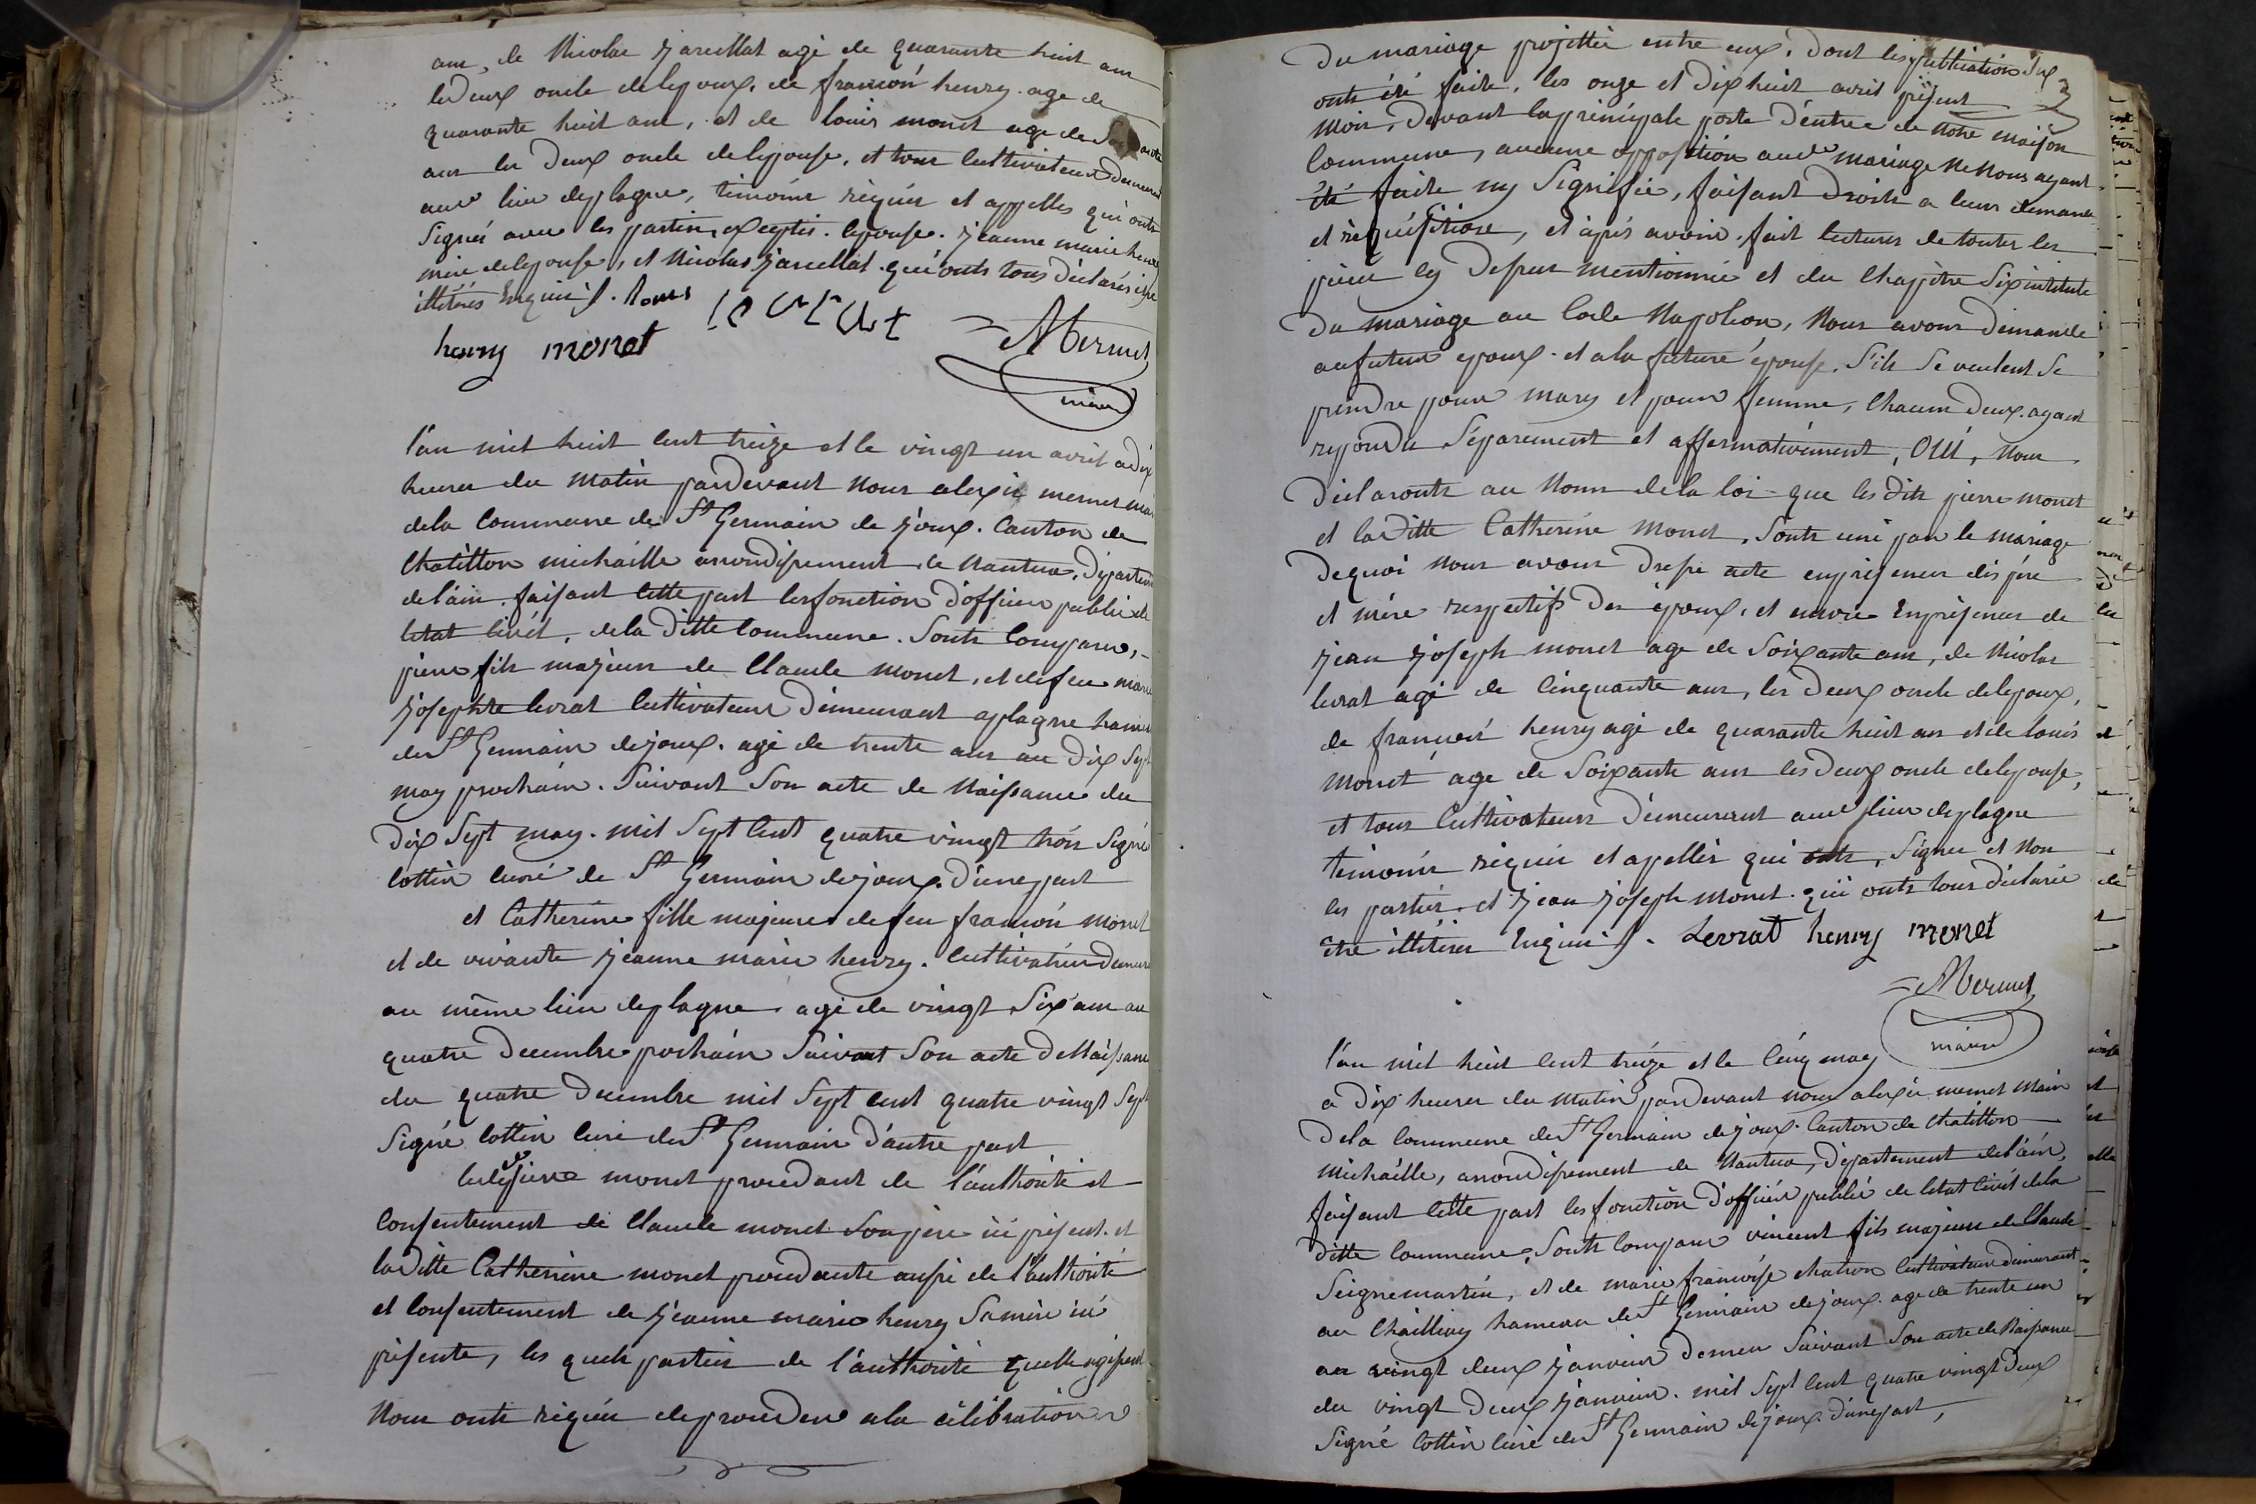 ans, de Nicolas Jarcellat agé de quarante huit ans
les deux oncle delepoux, de françoi henry age de
quarante huit ans, et de louis monet age de
ans les deux oncle delepouse, et tous Cultivateurs
aud lieu deplagne, témoins réquis et appellés qui onts
Signés avec les parties exceptés lepouse. jeanne marie henry
mère delepouse, et Nicolas jarcellat qui onts tous déclarés être
illitérés Enquis.
henry monet
AMermet
maire
l'an mil huit Cent treize et le vingt un avril adix
heures du matin pardevant Nous alexis mermet
dela Commune de St Germain de joux. Canton de
Chatillon michaille arrondissement de Nantua, Départem
delain faisant Cette part les fonction d'officier public de
letat Civil, dela ditte Commune. Sonts Comparus,
pierre fils majeur de Claude Monet, et defeu marie
josephte levrat Cultivateur Démeurant aplagne hameau
de St Germain dejoux. agé de trente ans au Dix Sept
may prochain. Suivant Son acte de Naissance du
Dix Sept may. mil Sept Cent quatre vingt trois Signé
Cottin Curé de St Germain dejoux. D'une part
et Catherine fille majeure defeu françoi Monet
et de vivante jeanne marie henry. Cultivatrice
au même lieu deplagne agé de vingt Six ans au
quatre Decembre prochain Suivant Son acte deNaissance
du quatre Decembre mil Sept cent quatre vingt Sept
Signé Cottin Curé de St Germain d'autre part
ledit pierre monet procedant de l'authorité et
Consentement de Claude monet Sonpère ici présent. et
laditte Catherine monet procedante aussi de l'authorité
et Consentement de jeanne marie henry Samère ici
présente, les quels parties de l'authorité quelle agissent
Nous onts réquis deproceder ala célébration
Du mariage projettée entre eux. Dont les publication
onts été faite, les onze et Dix huit avril présent
Mois. Devant laprincipale porte D'entrée de Notre maison
Commune, aucune opposition aud mariage Ne Nous ayant
été faite ny Signifié, faisant Droits a leurs demande
et réquisitions, et après avoir fait lectures de toutes les
pièces cy Dessus mentionnée et du Chapitre Six intitulé
Du mariage au Code Napoléon, Nous avons Démandé
aufuteur epoux et ala future épouse. S'ils Se veulent Se
prendre pour mary et pour femme, Chacun Deux ayant
repondu Séparement et affermativement, OUI, Nous
Déclaronts au Nom dela loi que les dits pierre monet
et laditte Catherine Monet, Sonts uni par le mariage
Dequoi Nous avons Dressé acte enprésences des père
et mère respectifs Des époux. et encore Enprésences de
jean joseph monet age de Soixante ans, de Nicolas
levrat agé de Cinquante ans, les Deux oncle delepoux,
de françoi henry agé de quarante huit ans et de louis
Monet age de Soixante ans les deux oncle delepouse,
et tous Cultivateurs Démeurant aud lieu deplagne
témoins réquis et appellés qui onts, Signés et Non
les parties. et jean joseph Monet. qui onts tous déclaré
être illitérés Enquis. Levrat henry monet
AMermet
maire
l'an mil huit Cent treize et le Cinq may
a Dix heures du matin pardevant nous alexis mermet Maire
Dela Commune de St Germain dejoux Canton de Chatillon
Michaille, arrondissement de Nantua, Département delain,
faisant Cette part les fonction d'officier public de letat Civil dela
ditte Commune, Sonts Comparu vincent fils majeur de Claude
Seignemartin, et de marie françoise chatron Cultivateur demeurant
au Chaillioy hameau de St Germain dejoux. age de trente un
au vingt deux janvier Dernier Suivant Son acte de Naissance
du vingt Deux janvier. mil Sept Cent quatre vingt Deux
Signé Cottin Curé de St Germain dejoux d'une part,